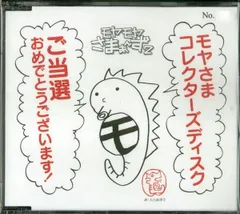 No.
モヤモヤ
さまぁ〜ず2
モヤさま
コレクターズディスク
ご当選
おめでとうございます!
モ